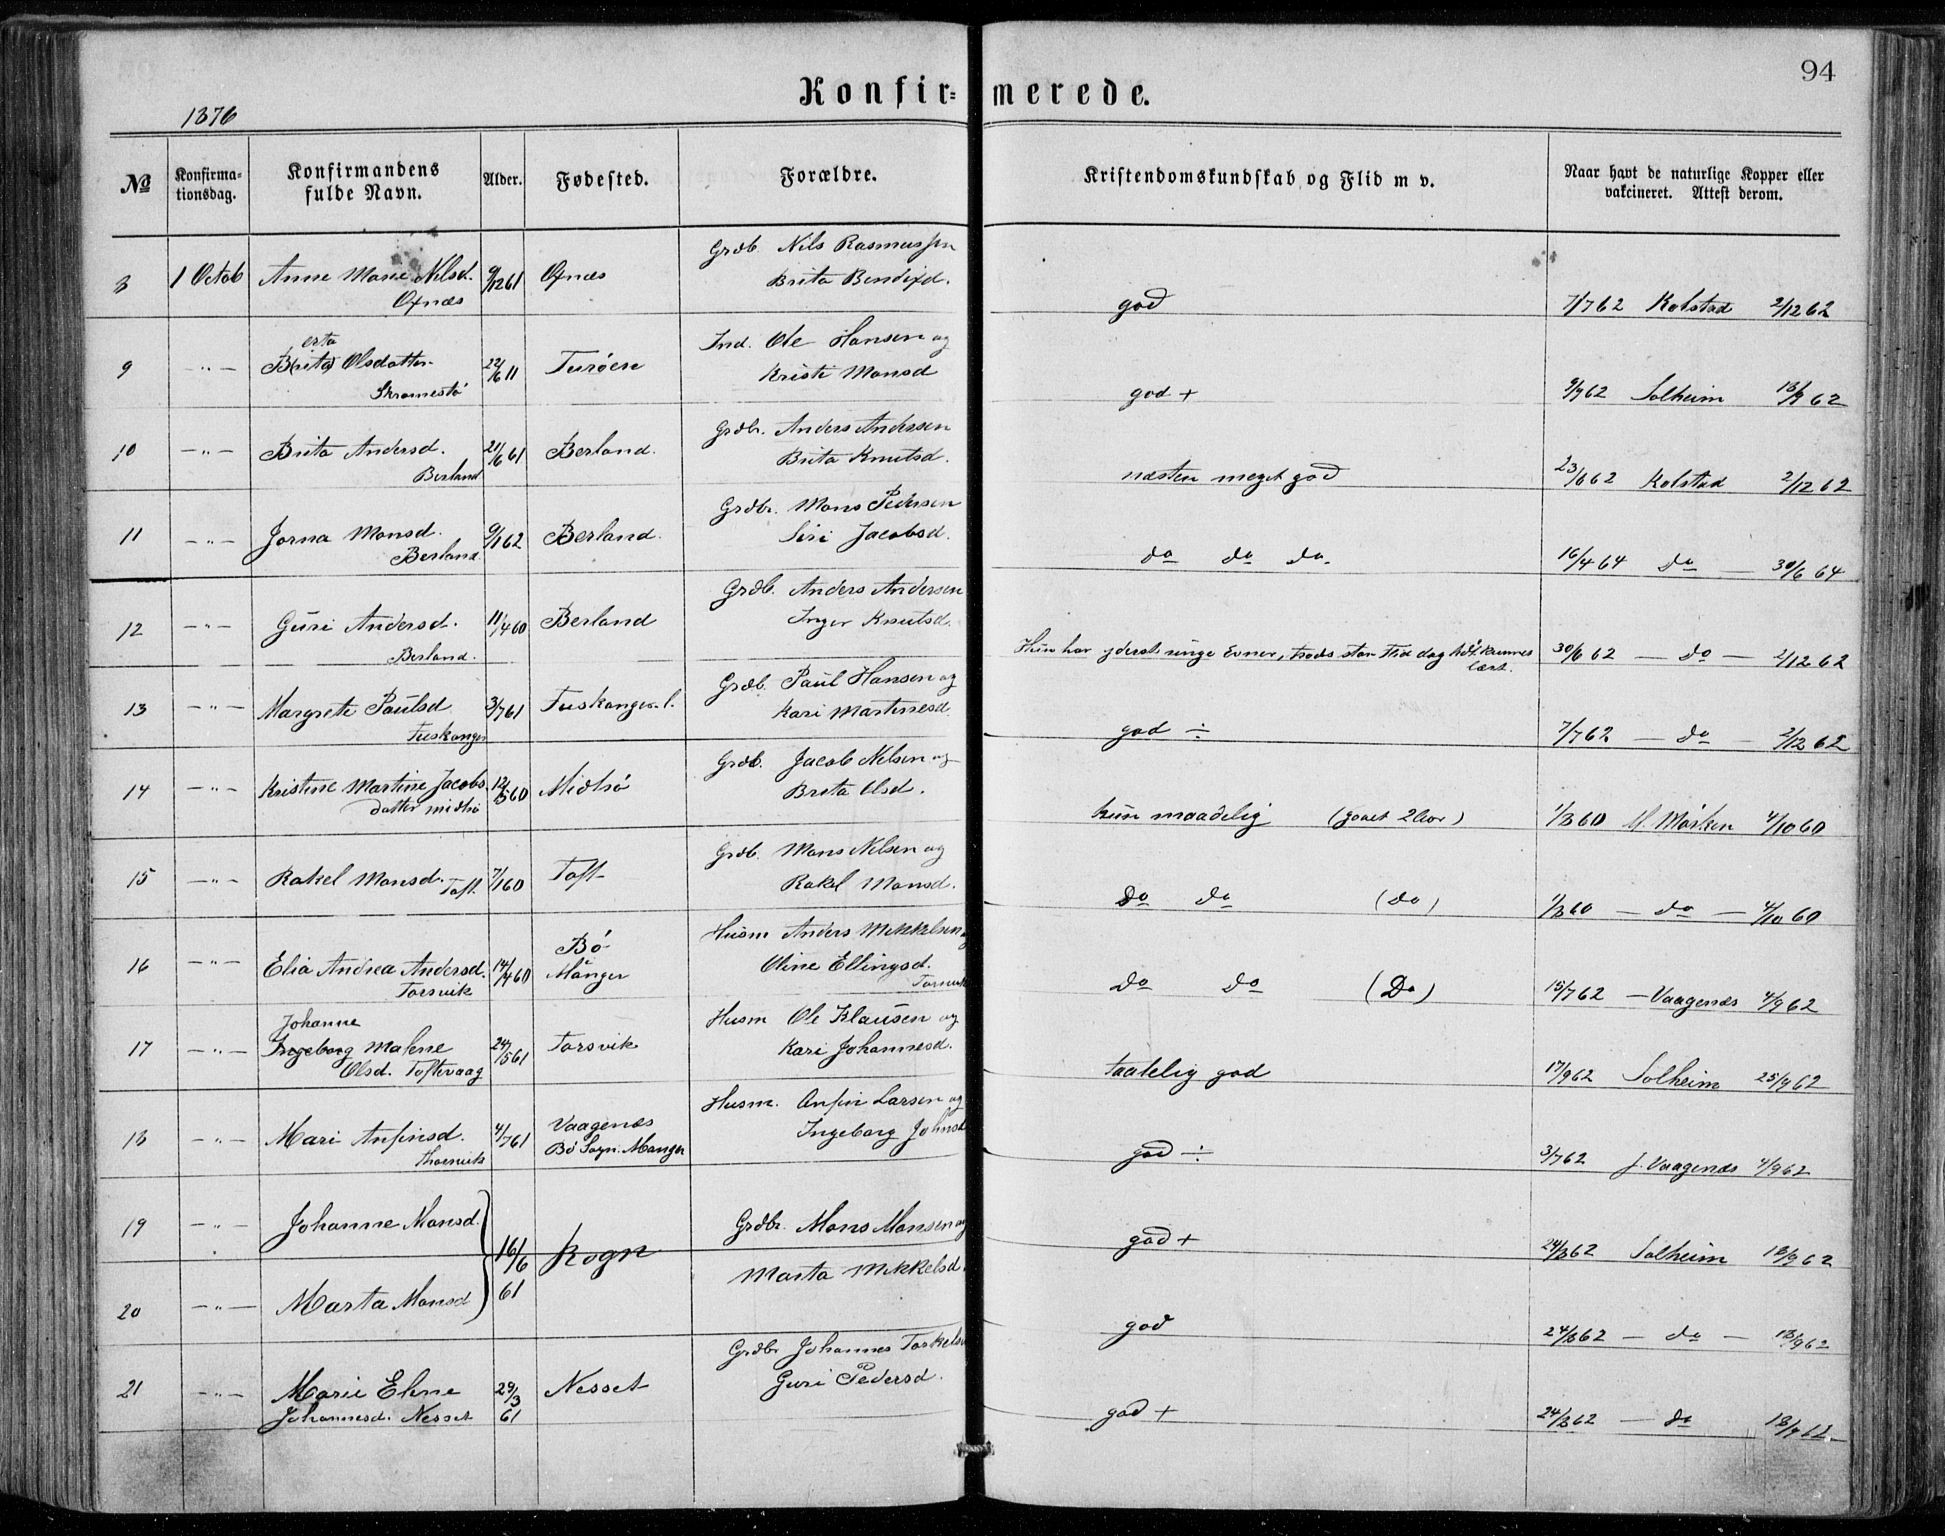 94
Konfir= merede.
1876
No Konfirma- tionsdag. Konfirmandens fulde Navn. Alder. Fødested. Forældre. Kristendomskundskab og Flid m v. Naar havt de naturlige Kopper eller vakcineret. Attest derom.
8 1 Octob Anne Marie Nilsd. 9/12 61 Oxnæs Grdb. Nils Rasmussen
Oxnæs Brita Bendixd. god 7/7 62 Kolstad 2/12 62
erta
9 -"- B(rita) Olsdatter 22/6 11 Turöen Ind. Ole Hansen og
Skromestö Kristi Monsd god + 9/9 62 Solheim 18/9 62
10 -"- Brita Andersd. 21/6 61 Berland. Grdbr. Anders Andersen
Berland Brita Knutsd. næsten meget god 23/6 62 Kolstad 2/12 62
11 -"- Jorna Monsd. 9/1 62 Berland. Grdbr. Mons Pedersen
Berland. Siri Jacobsd. do do do. 16/4 64 do - 30/6 64
12 -"- Guri Andersd. 11/4 60 Berland Grdb. Anders Andersen
Berland. Inger Knutsd. Hun har yderst ringe Evner, trods stor Flid dog lidt kunnet
lært. 30/6 62 - do - 2/12 62
13 -"- Margrete Paulsd 3/7 61 Tuskanger. l. Grdb. Paul Hansen og
Tuskanger Kari Martinesd. god ÷ 7/7 62 - do - 2/12 62
14 -"- Kristine Martine Jacobs 12/5 60 Midtö Grdb. Jacob Nilsen og
datter Midtö Brita Olsd. kun maadelig (gaaet 2 Aar) 1/8 60 M. Mörken 4/10 60
15 -"- Rakel Monsd. Toft. 7/1 60 Toft Grdb. Mons Nilsen og
Rakel Monsd. Do do (do) 1/8 60 - do - 4/10 60
16 -"- Elia Andrea Andersd. 14/4 60 Bö Manger Husm Anders Mikkelsen og
Torsvik Oline Ellingsd. Torsvik do do (Do) 15/7 62 - Vaagenæs 4/9 62
Johanne
17 -"- Ingeborg Malene 24/5 61 Torsvik Husm Ole Klausen og
Olsd. Toftevaag Kari Johannesd. taalelig god 17/9 62 Solheim 25/9 62
18 -"- Mari Anfinsd. 4/7 61 Vaagenæs Husm. Anfin Larsen og
Thorsvik Bö Sogn. Manger Ingeborg Johnsd god ÷ 3/7 62 J. Vaagenæs 4/9 62
19 -"- Johanne Monsd. 16/6 61 Rogn Grdbr. Mons Monsen og god + 24/8 62 Solheim 18/9 62
20 -"- Marta Monsd Marta Mikkelsd. god 24/8 62 - do - 18/9 62
21 -"- Marie Elene 29/3 61 Nesset Grdbr Johannes Torkels
Johannesd. Nesset Guri Pedersd. god + 24/8 62 - do 18/9 62